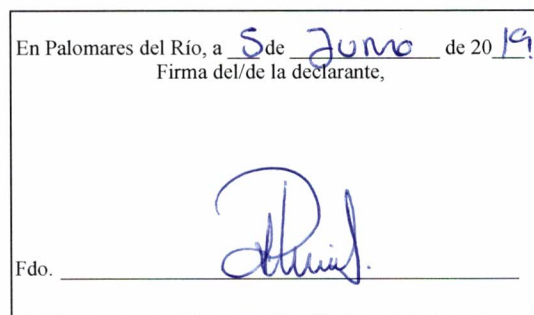 En Palomares del Río, a 5 de Junio de 2019
Firma del/de la declarante,
Fdo.